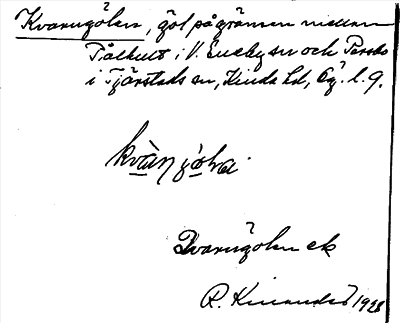 Kvarngölen, göl på gränsen mellan
Pålhult i V. Eneby sn och Persbo
i Tjärstads sn, Kinda hd, Ög. l. 9.
Kvarngölen ek
R. Kinander 1928